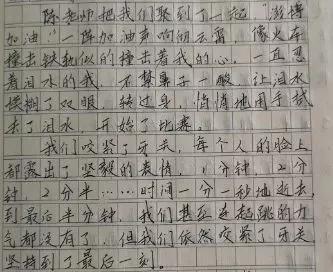 陈老师把我们聚到了一起“滋博
加油”一阵加油声响彻云霄,像火车
撞击铁轨似的撞击着我的心,一直忍
着泪水的我,不禁鼻子一酸,让泪水
模糊了双眼,转过身,悄悄地用手拭
去了泪水,开始了比赛。
我们咬紧了牙关,每个人的脸上
都露出了坚毅的表情,1分钟,2分
钟,2分半……时间一分一秒地逝去,
到最后半分钟,我们甚至连起跳的力
气都没有了,但我们依然咬紧了牙关
坚持到了最后一刻。